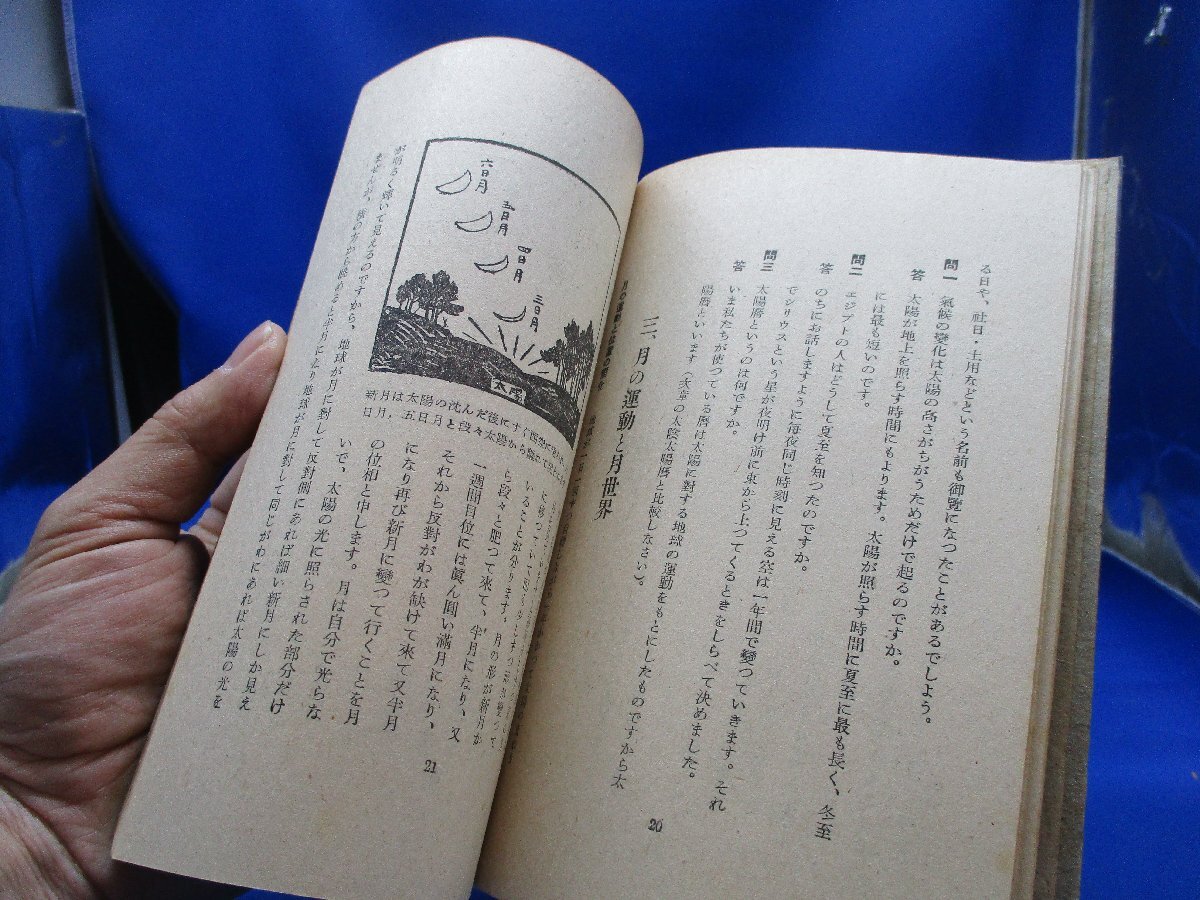 る日や、社日・土用などという名前も御覽になつたことがあるでしよう。
問一 氣候の變化は太陽の高さがちがうためだけで起るのですか。
答 太陽が地上を照らす時間にもよります。太陽が照らす時間に夏至に最も長く、冬至
には最も短いのです。
問二 エジプトの人はどうして夏至を知つたのですか。
答 のちにお話しますように每夜同じ時刻に見える空は一年間で變つていきます。それ
でシリウスという星が夜明け前に東から上つてくるときをしらべて決めました。
問三 太陽暦というのは何ですか。
答 いま私たちが使つている暦は太陽に對する地球の運動をもとにしたものですから太
陽暦といいます(次章の太陰太陽暦と比較しなさい)。
三、月の運動と月世界
20
六日月
五日月
四日月
三日月
太陽
新月は太陽の沈んだ後にすぐ
日月、五日月と段々太陽から離れて
いることが分ります。月の形が新月か
ら段々と肥つて來て、半月になり、又
一週間目位には眞ん圓い滿月になり、
それから反對がわが缺けて來て又半月
になり再び新月に變つて行くことを月
の位相と申します。月は自分で光らな
いで、太陽の光に照らされた部分だけ
が明るく輝いて見えるのですから、地球が月に對して反對側にあれば細い新月にしか見え
ませんが、橫の方から眺めると半月になり地球が月に對して同じがわにあれば太陽の光を
21